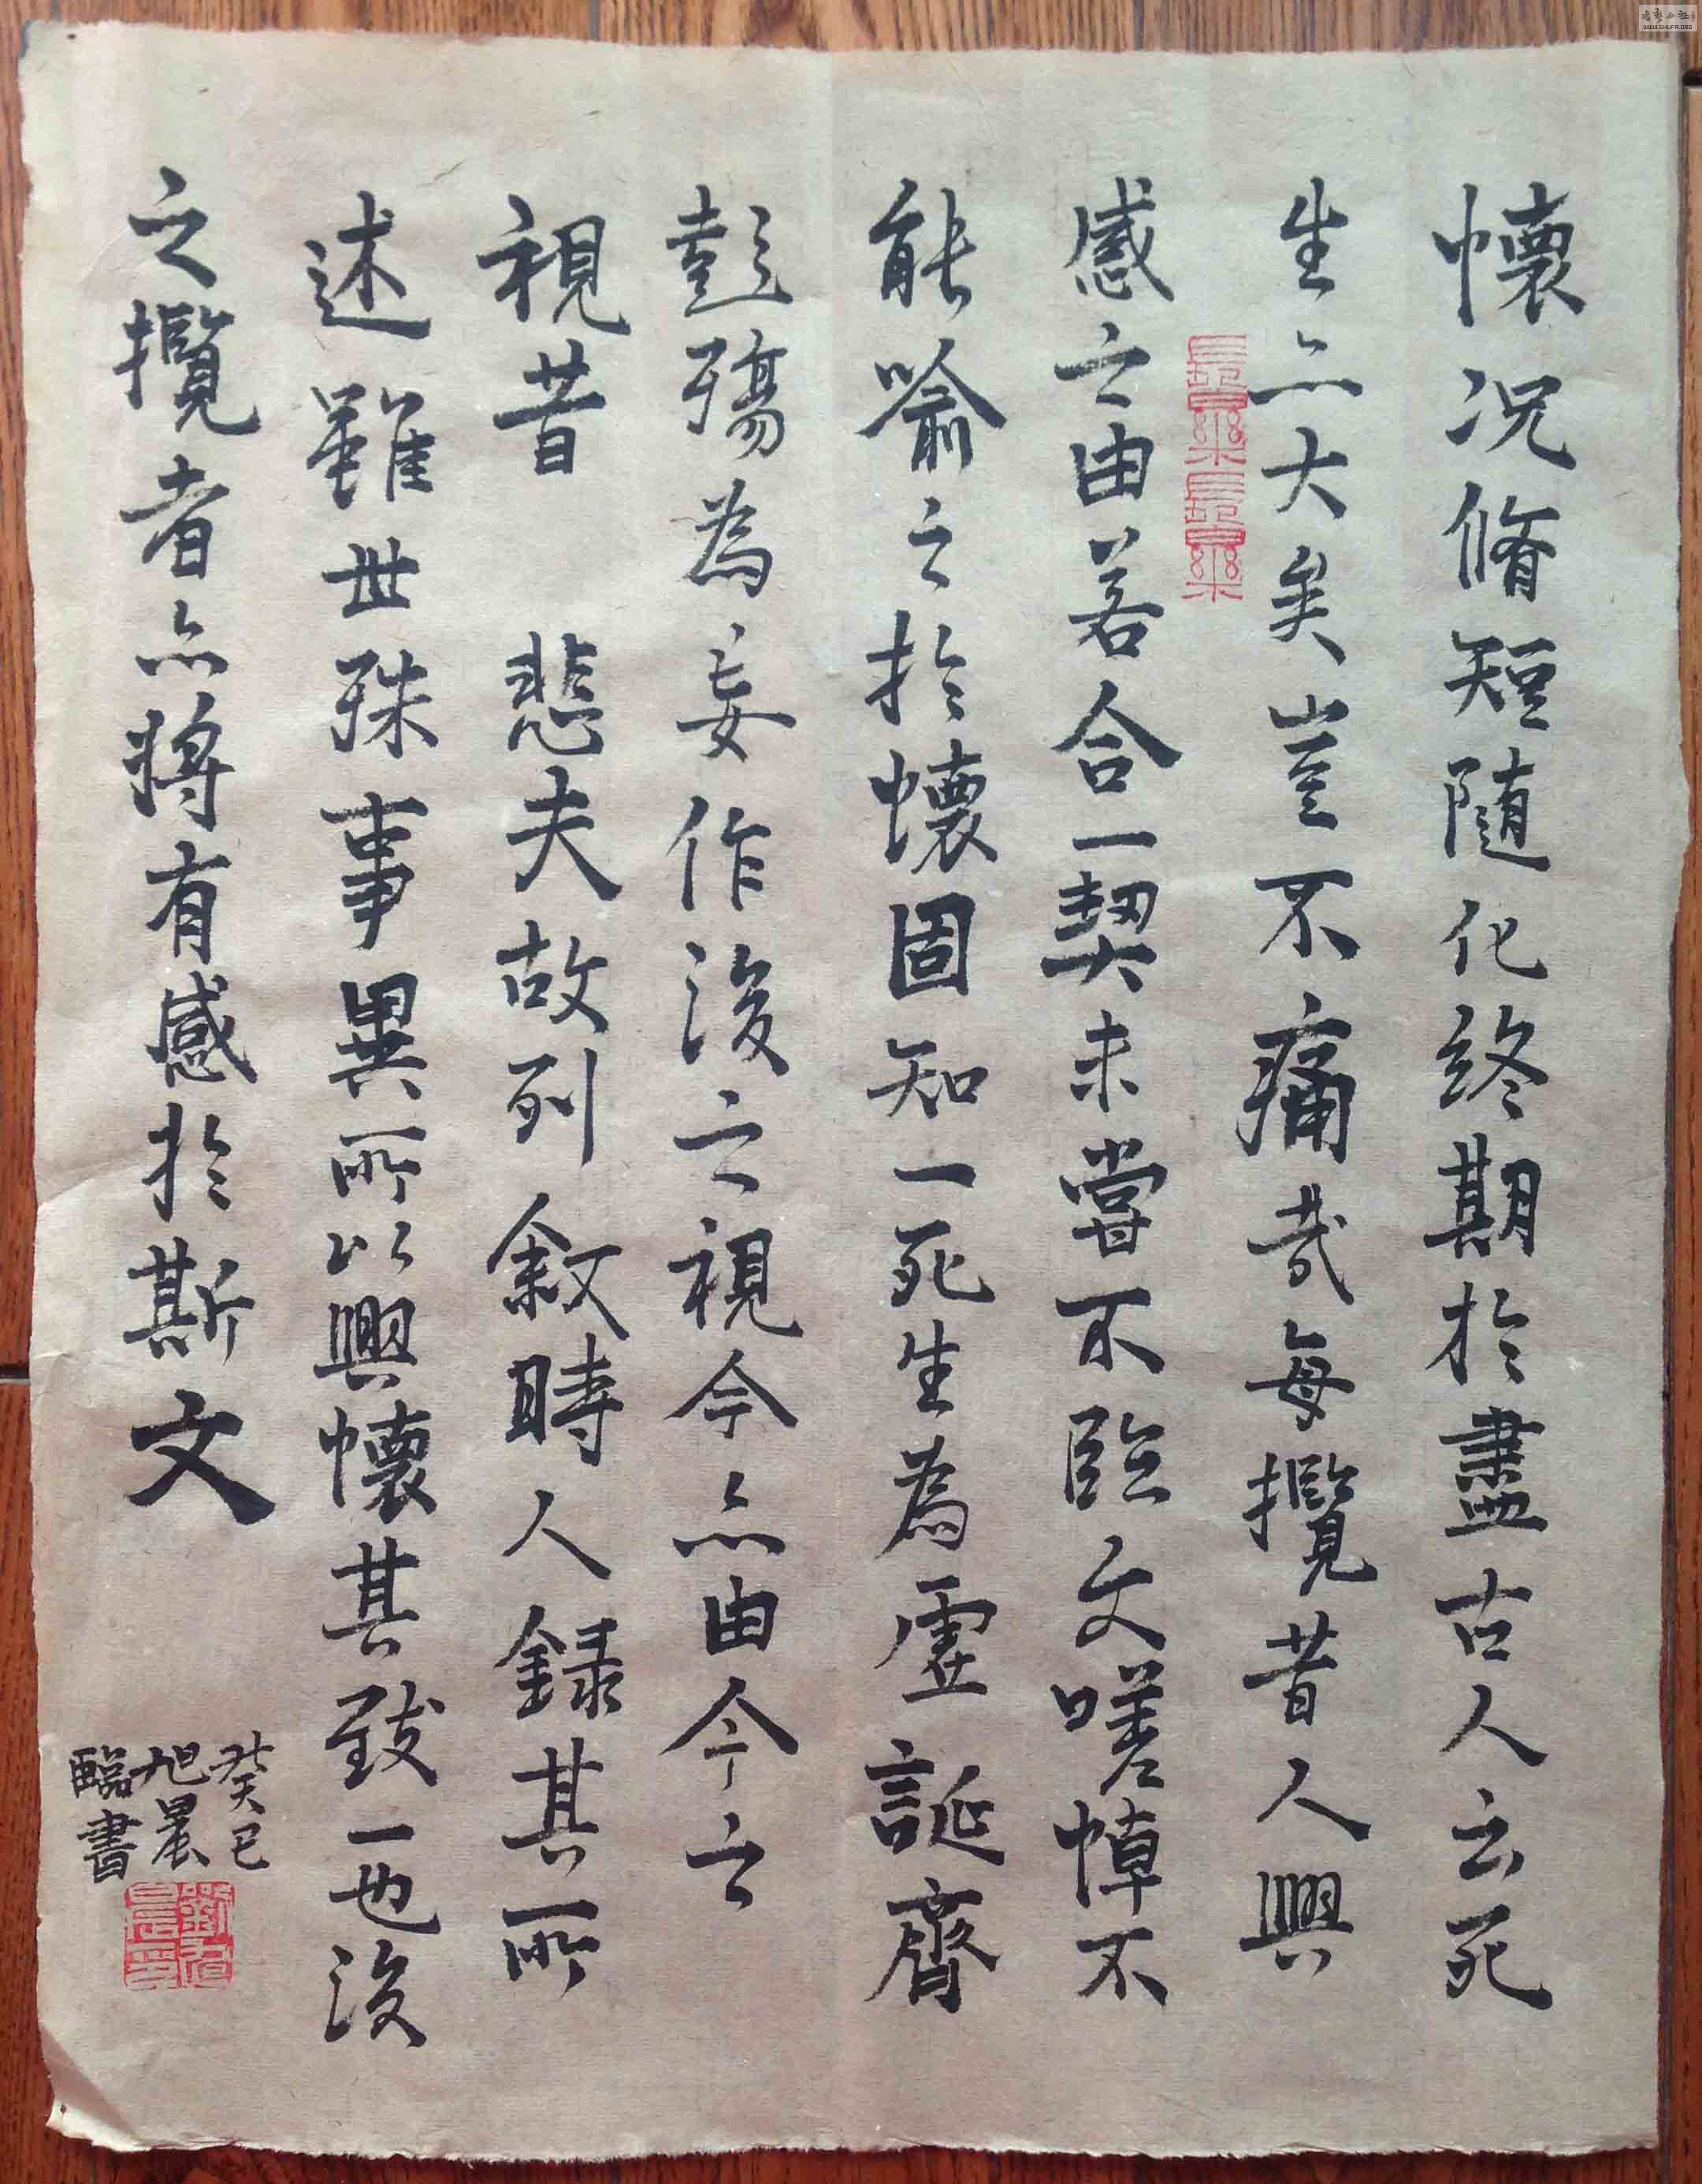 懷况脩短隨化終期於盡古人云死
生亦大矣豈不痛哉每攬昔人興
感之由若合一契未嘗不臨文嗟悼不
能喻之於懷固知一死生為虛誕齊
彭殤為妄作後之視今亦由今之
視昔 悲夫故列敘時人錄其所
述雖世殊事異所以興懷其致一也後
之攬者亦將有感於斯文
癸巳
旭晨
臨書
WWW.SHUFA.ORG